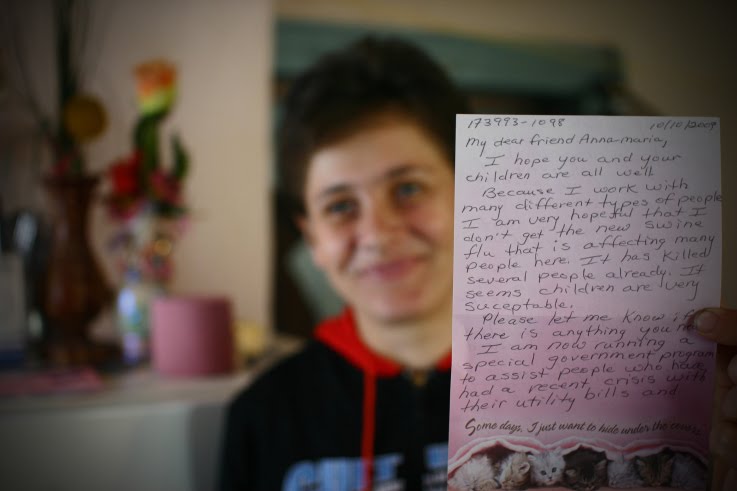 173993-1098 10/10/2009
My dear friend Anna-maria,
I hope you and your
children are all well.
Because I work with
many different types of people
I am very hopeful that I
don't get the new swine
flu that is affecting many
people here. It has killed
several people already. It
seems children are very
suceptable.
Please let me know if
there is anything you
I am now running a
special government program
to assist people who have
had a recent crisis with
their utility bills and
Some days, I just want to hide under the covers